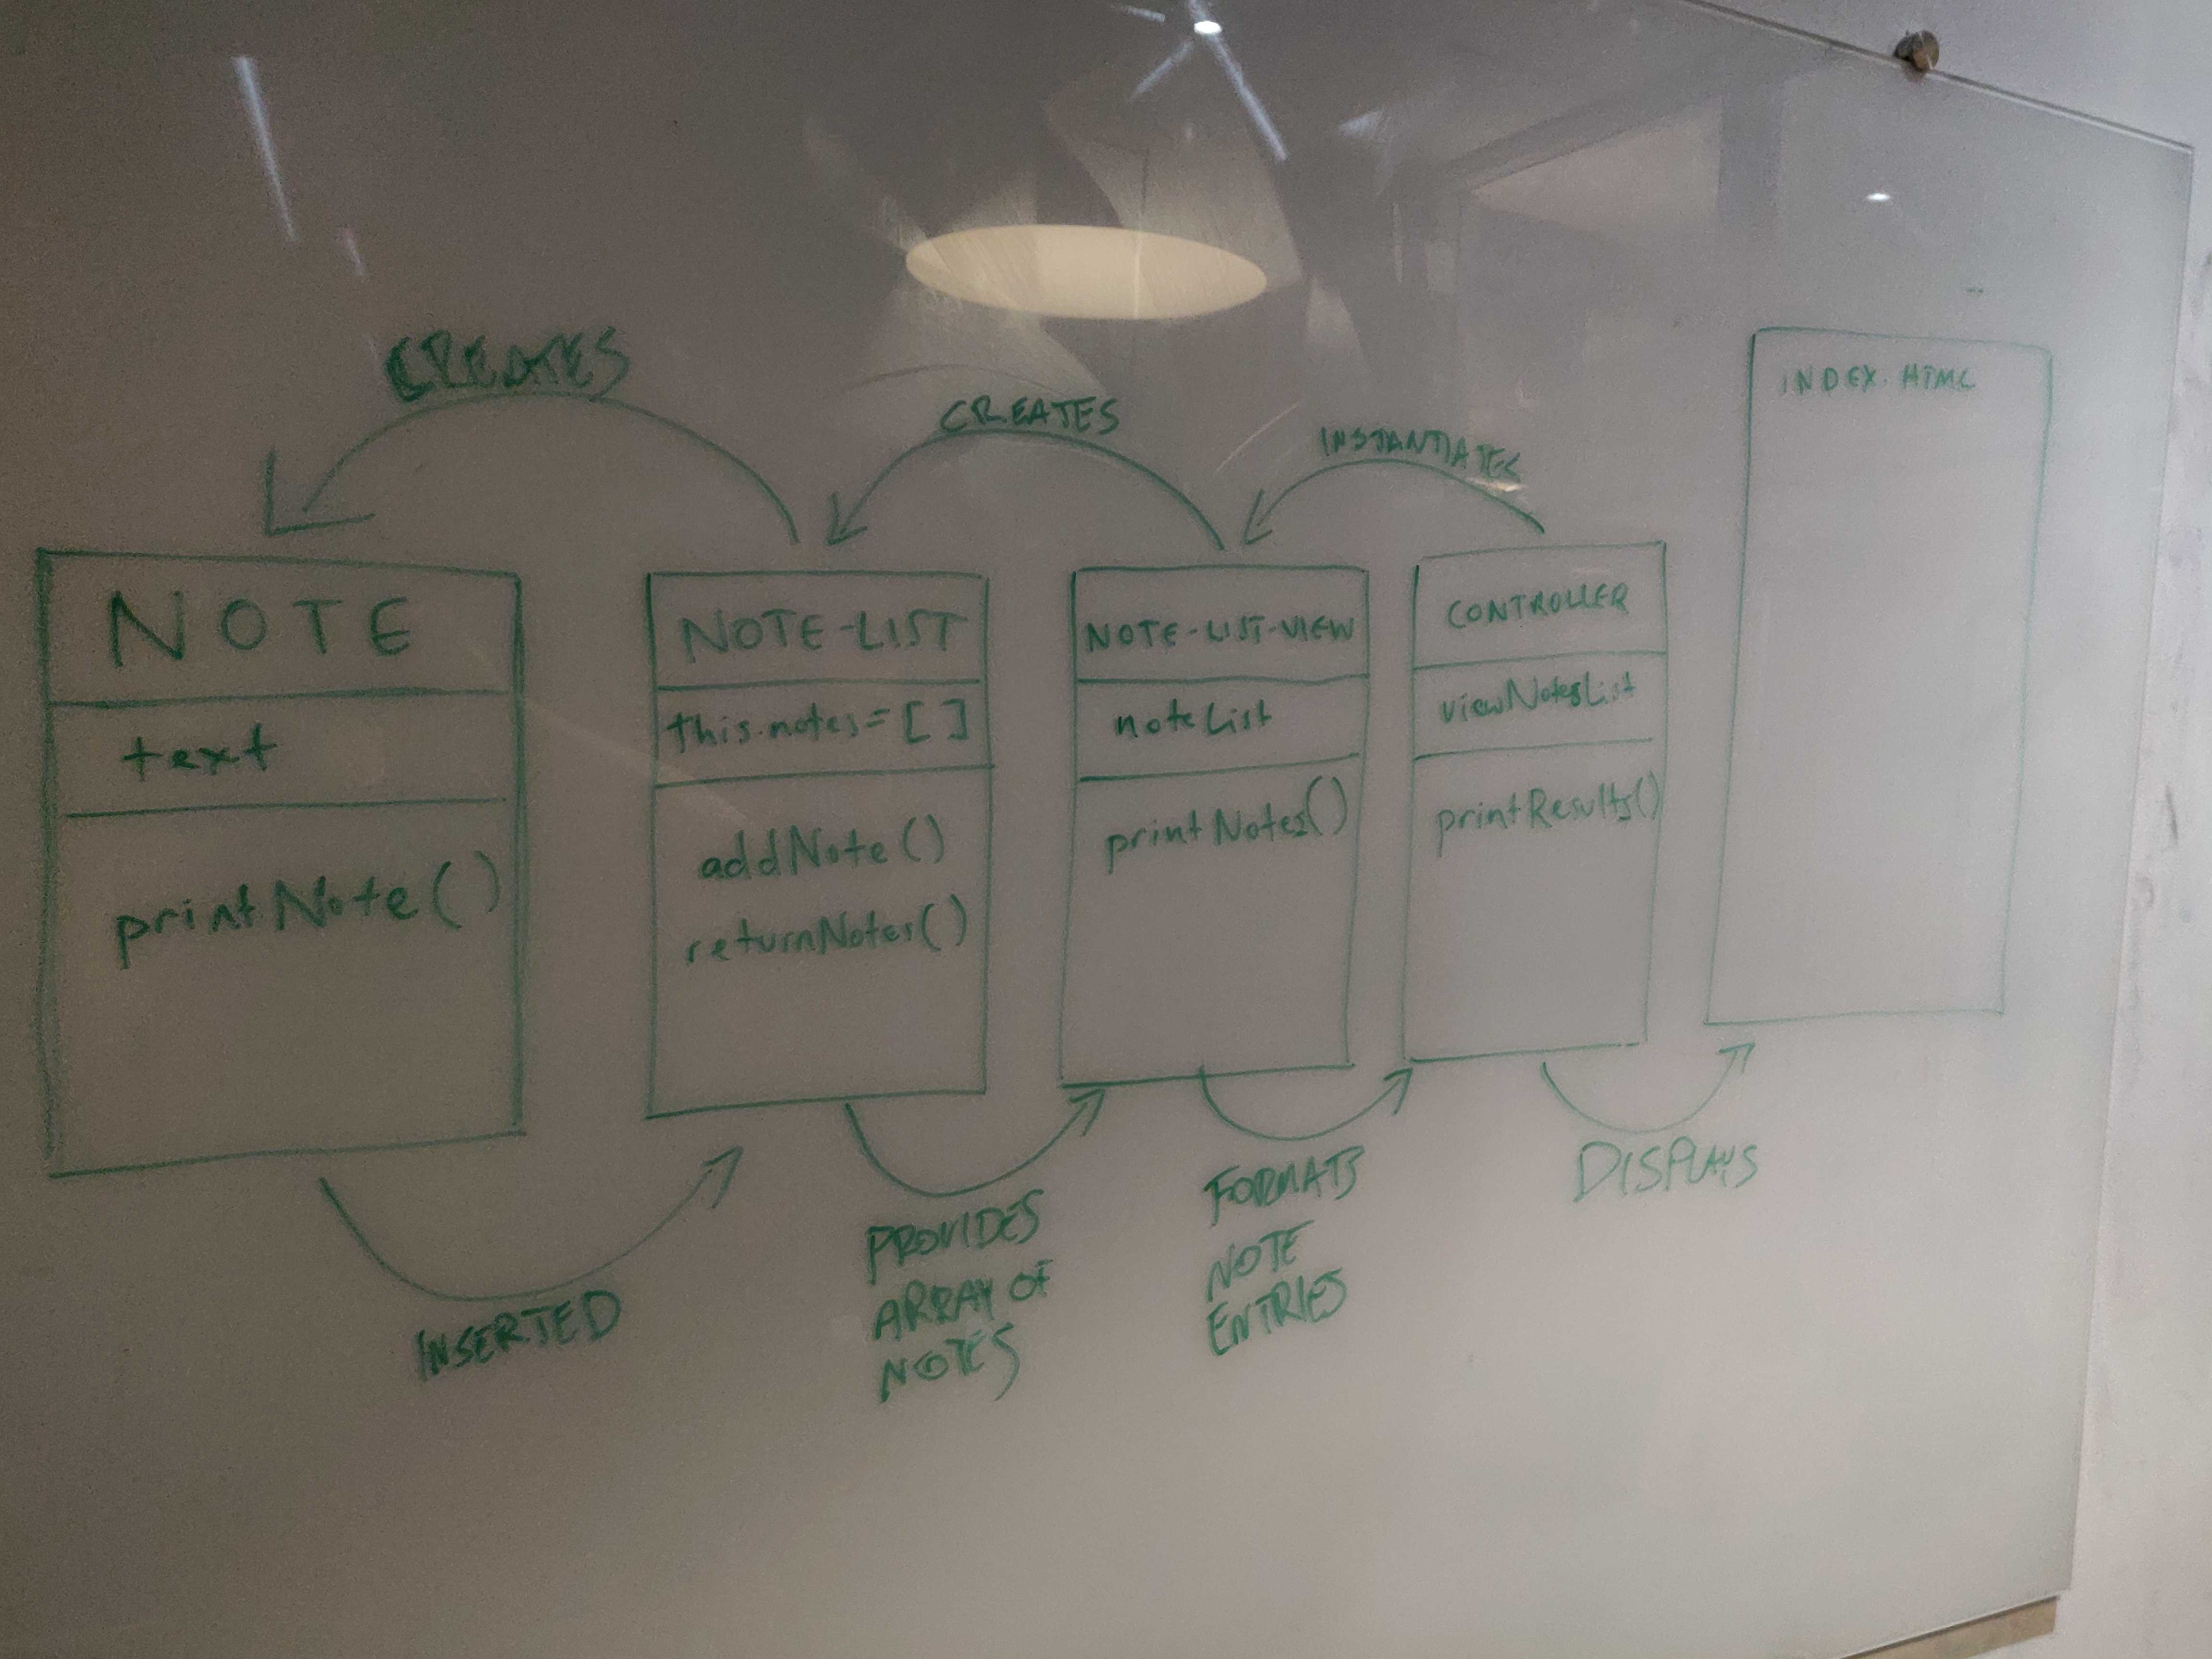 CREATES
CREATES
INSTANTIATES
INDEX.HTML
NOTE
text
printNote()
NOTE-LIST
this.notes=[]
addNote()
returnNotes()
NOTE-LIST-VIEW
noteList
printNotes()
CONTROLLER
viewNotesList
printResults()
INSERTED
PROVIDES
ARRAY OF
NOTES
FORMATS
NOTE
ENTRIES
DISPLAYS